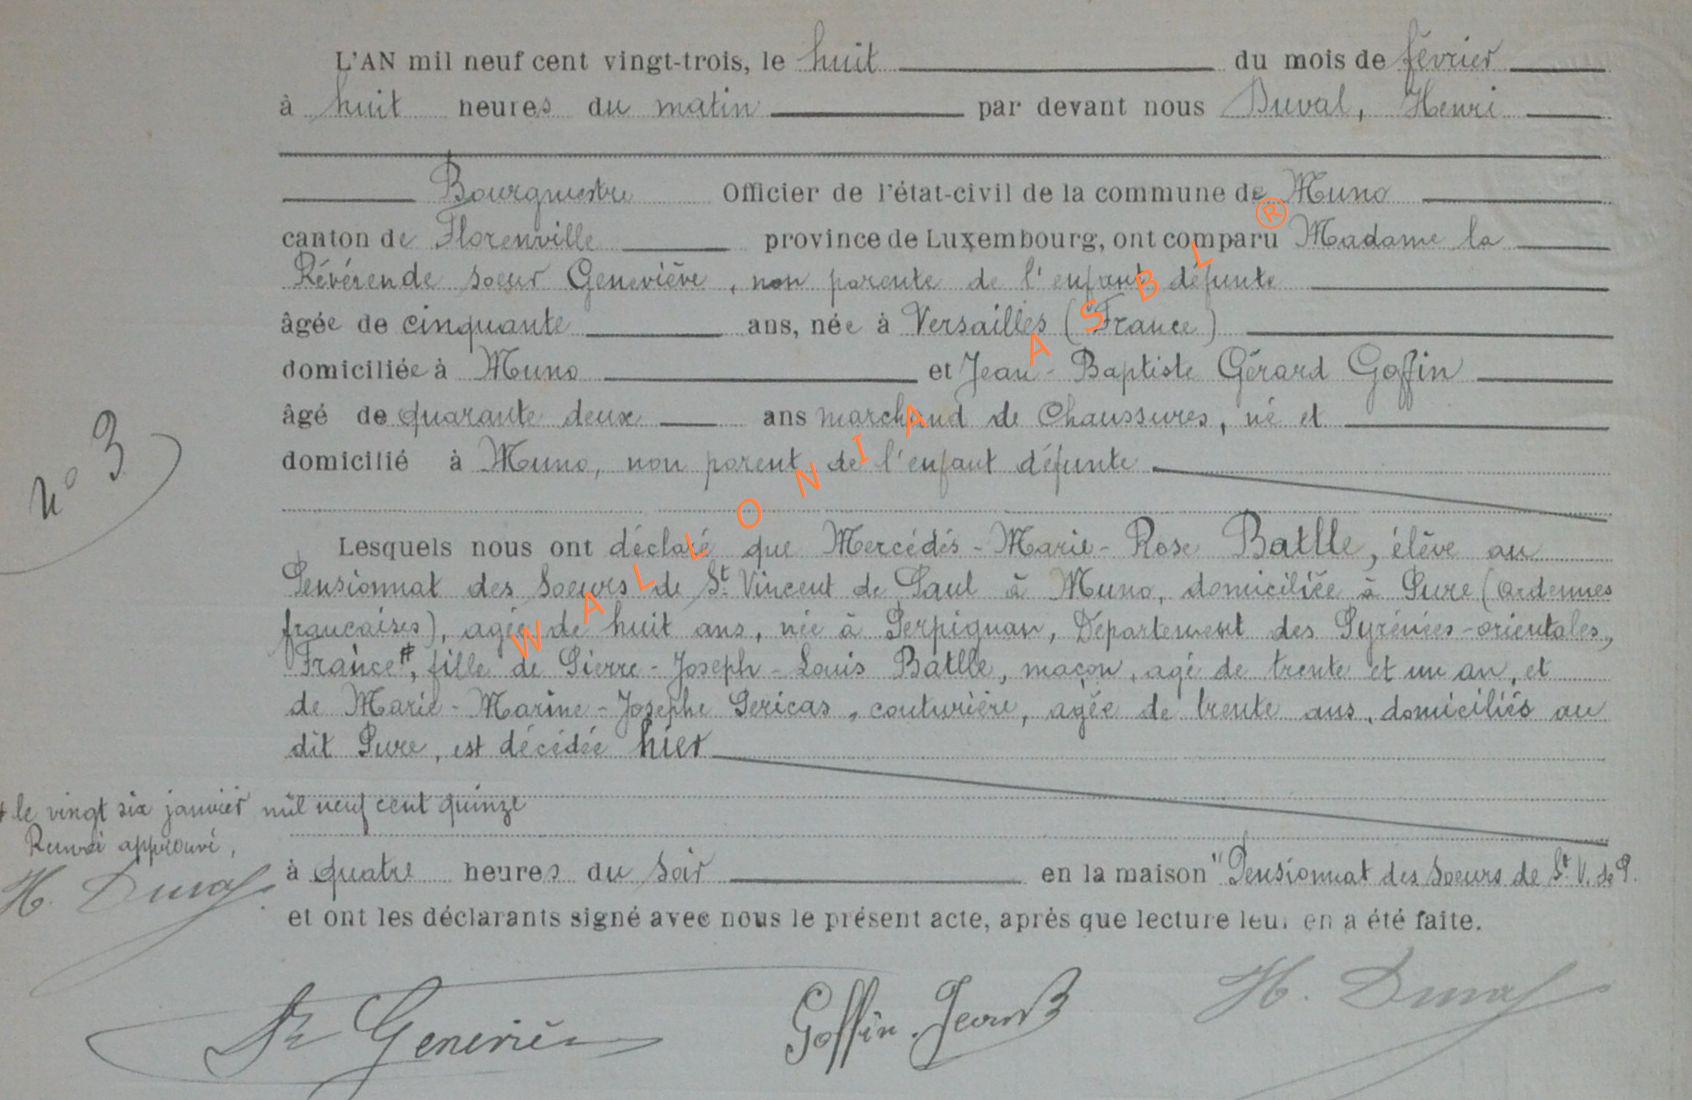 L'AN mil neuf cent vingt-trois, le huit du mois de février
à huit heures du matin par devant nous Duval, Henri
Bourgmestre Officier de l'état-civil de la commune de Muno
canton de Florenville province de Luxembourg, ont comparu Madame la
Révérende soeur Geneviève, non parente de l'enfant défunte
âgée de cinquante ans, née à Versailles (France)
domiciliée à Muno et Jean-Baptiste Gérard Goffin
âgé de quarante deux ans marchand de Chaussures, né et
domicilié à Muno, non parent de l'enfant défunte
n° 3
Lesquels nous ont déclaré que Mercédés-Marie-Rose Batlle, élève au
Pensionnat des Soeurs de St Vincent de Paul à Muno, domiciliée à Pure (Ardennes
françaises), agée de huit ans, née à Perpignan, Département des Pyrénées-orientales,
France #, fille de Pierre-Joseph-Louis Batlle, maçon, agé de trente et un an, et
de Marie-Marine-Josephe Pericas, couturière, agée de trente ans, domiciliés au
dit Pure, est décédée hier
# le vingt six janvier mil neuf cent quinze
Renvoi approuvé,
H. Duval
à quatre heures du soir en la maison "Pensionnat des Soeurs de St V. de P.
et ont les déclarants signé avec nous le présent acte, après que lecture leur en a été faite.
Sr Geneviève Goffin Jean B H. Duval
WALLONIA ASBL ®